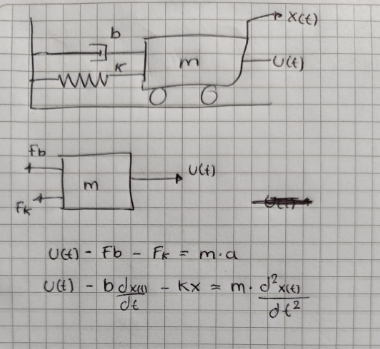 x(t)
b
k
m
U(t)
Fb
U(t)
m
Fk
U(t) - Fb - Fk = m·a
U(t) - b dx(t)/dt - kx = m· d²x(t)/dt²